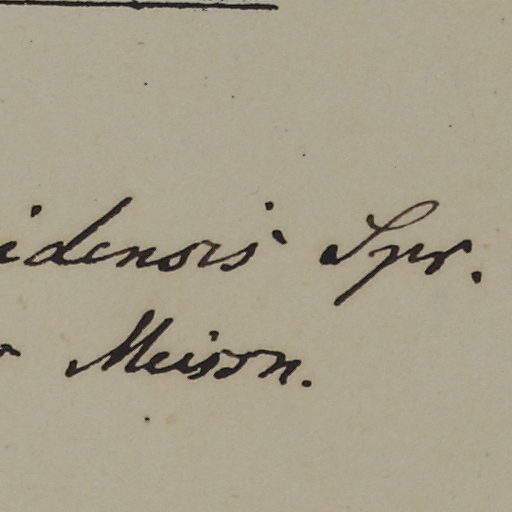 idensis Spr.
Meissn.